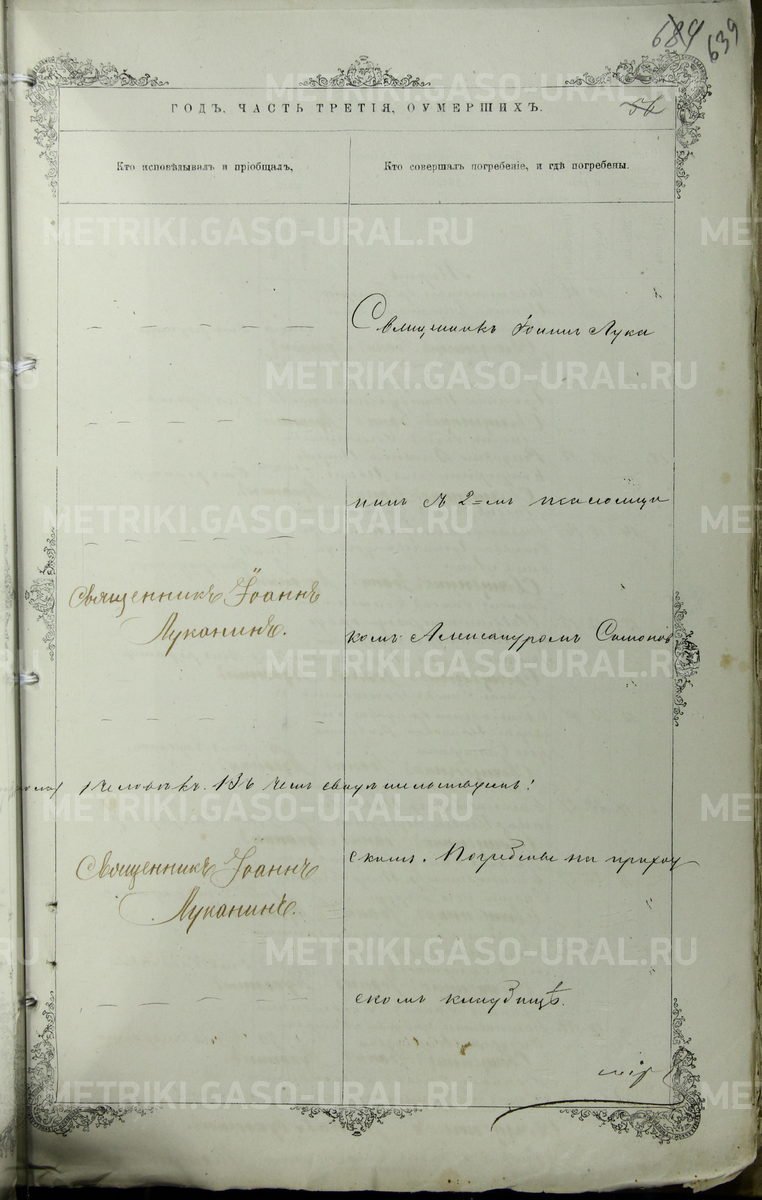 684 639
ГОДЪ, ЧАСТЬ ТРЕТІЯ, ОУМЕРШИХЪ.
56
Кто исповѣдывалъ и пріобщалъ.
Кто совершалъ погребеніе, и гдѣ погребены.
METRIKI.GASO-URAL.RU
Священникъ Іоаннъ Лука
нинъ съ 2=мъ псаломщи
Священникъ Іоаннъ
Луканинъ.
комъ Александромъ Сапожни
человѣкъ. Въ чемъ свидѣтельствуемъ:
скомъ. Погребены на приход
Священникъ Іоаннъ
Луканинъ.
скомъ кладбищѣ.